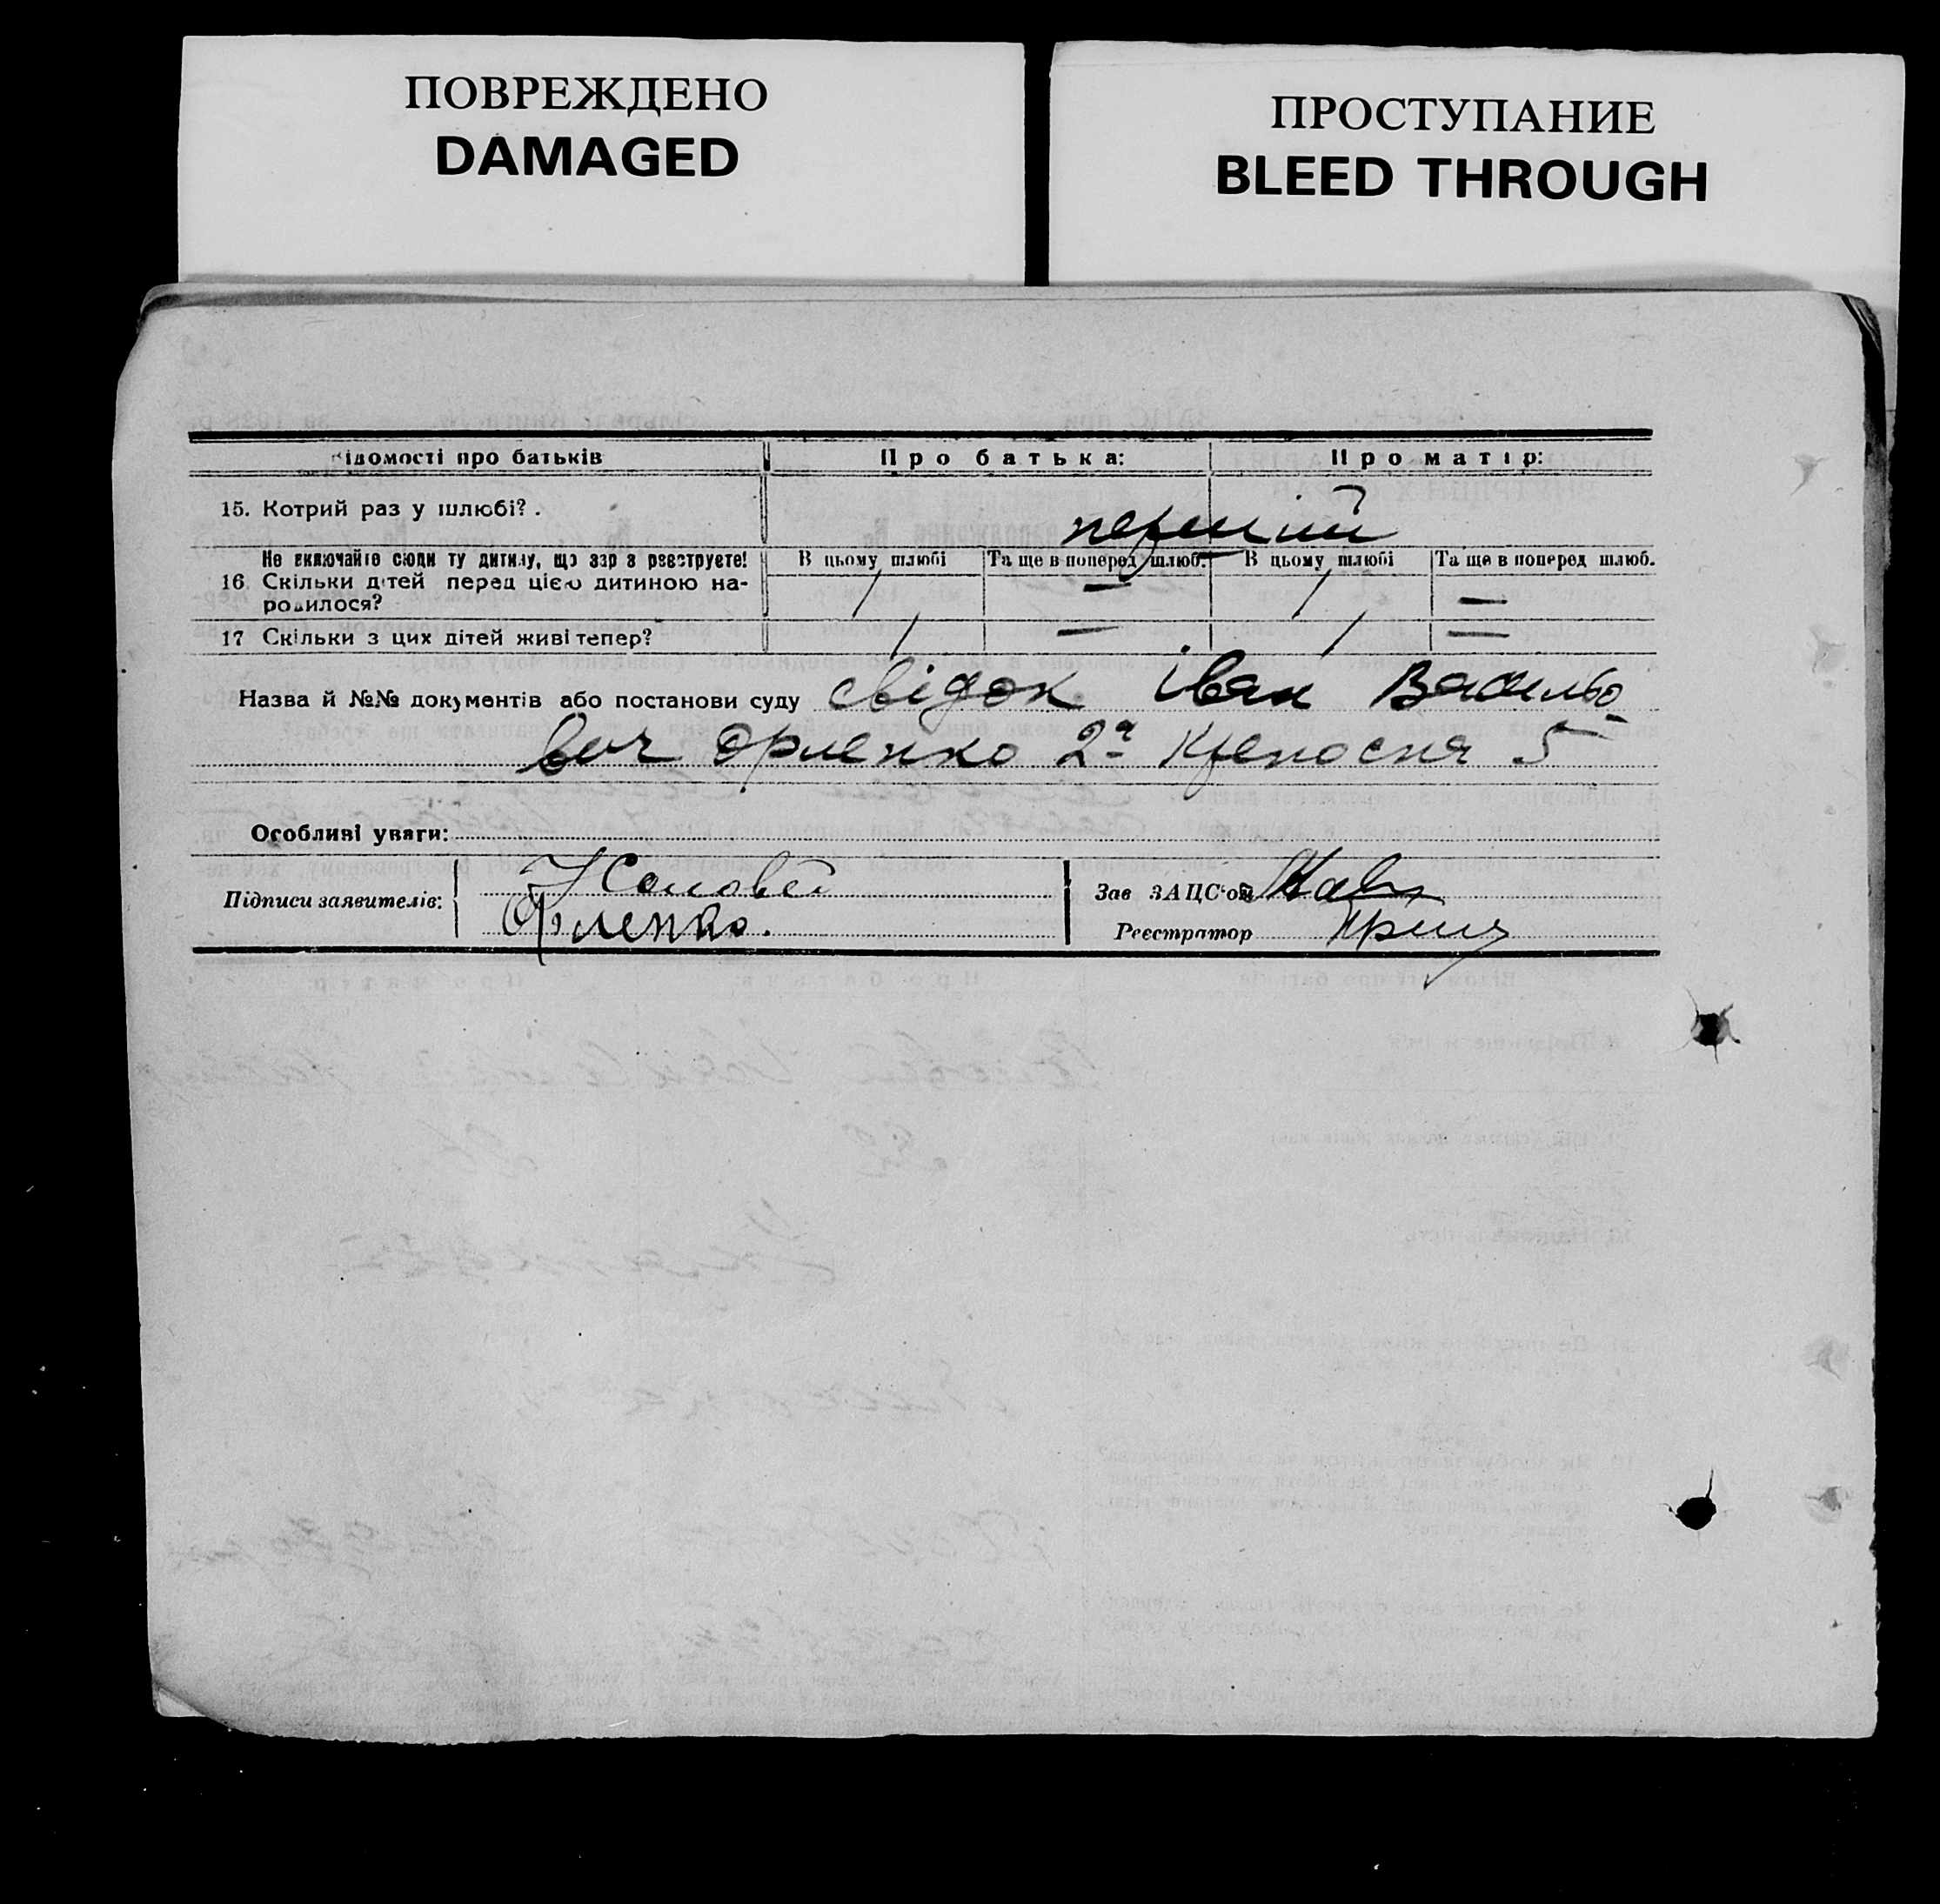 ПОВРЕЖДЕНО
DAMAGED
ПРОСТУПАНИЕ
BLEED THROUGH
Відомості про батьків
Про батька:
Про матір:
15. Котрий раз у шлюбі? .
перший
Не включайте сюди ту дитину, що зараз реєструєте!
16. Скільки дітей перед цією дитиною на-
родилося?
В цьому шлюбі
Та ще в поперед шлюб.
В цьому шлюбі
Та ще в поперед шлюб.
1 — 1 —
17 Скільки з цих дітей живі тепер?
1 — 1 —
Назва й №№ документів або постанови суду свідок Іван Василье-
вич Орленко 2а Крепосня 5
Особливі уваги:
Підписи заявителів:
Соловей
Орленко.
Зав ЗАЦС'ом
Реєстратор